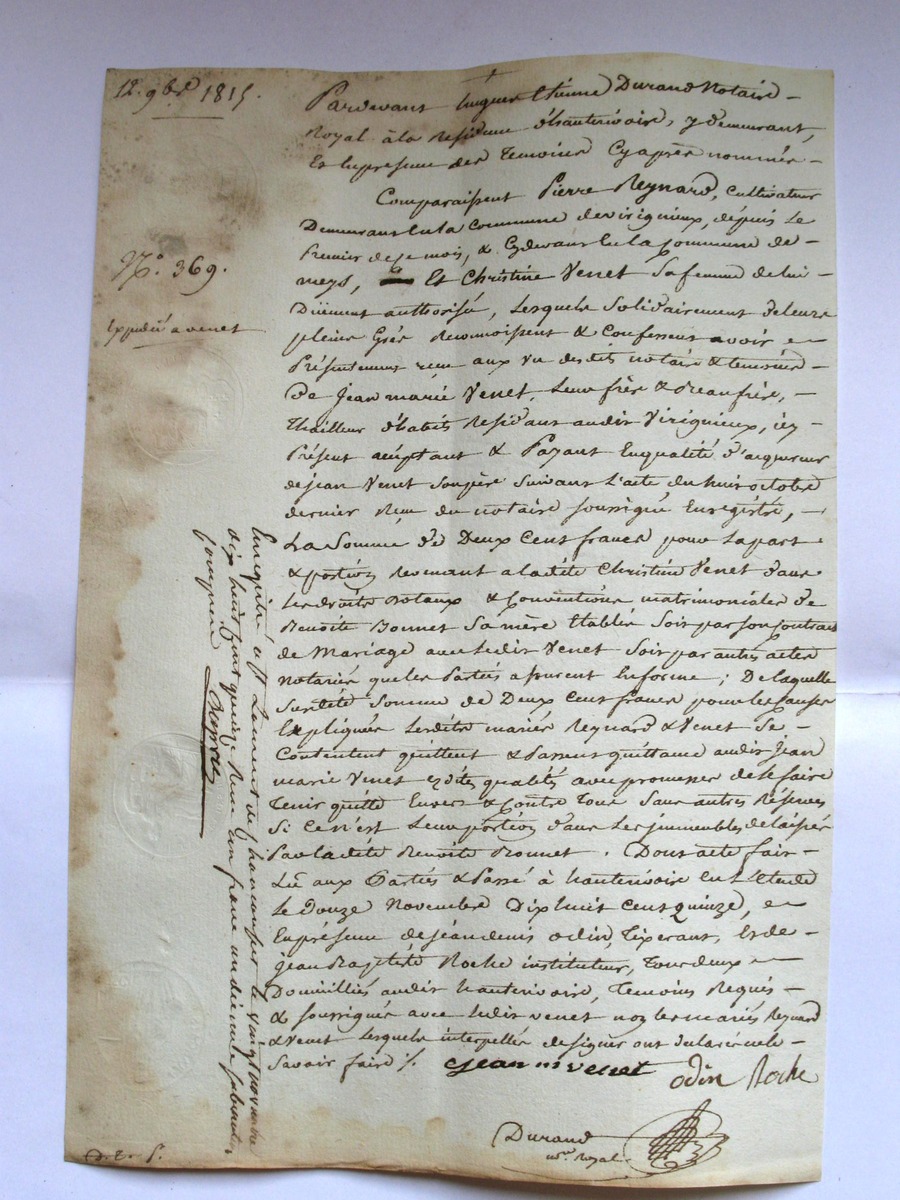 12. 9bre 1815.
N.° 369.
Expédié a venet
Pardevant hugues Etienne Durand Notaire
Royal à la Residence d'hauterivoire, y demeurant,
Et En presence des Temoins Cy après nommés
Comparaissent Pierre Reynard, cultivateur
Demeurant En la Commune de virignieux, depuis le
Premier de ce mois, & Cydevant En la Commune de
meys, Et Christine Venet sa femme de lui
Duëment authorisée, Lesquels Solidairement de leurs
pleins Grés Reconnoissent & Confessent avoir
Présentement reçu aux vu desdits notaire & temoins
De Jean marie Venet, Leur frère & Beaufrère,
thailleur d'habits Residant audit Virignieux, icy
Présent acceptant & Payant En qualité d'acquereur
de jean Venet Son père Suivant L'acte du huit octobre
dernier Reçu du notaire soussigné Enregistré,
La Somme De Deux Cent francs pour la part
& portion Revenant a ladite Christine Venet dans
Les droits Dotaux & Conventions matrimoniales De
Benoite Bonnet Sa mère Etablis Soit par son Contrat
de Mariage avec ledit Venet Soit par autres actes
notariés que les Parties assurent En forme ; De laquelle
Susdite Somme de Deux Cent francs pour les Causes
Expliquées Lesdits mariés Reynard & Venet Se
Contentent quittent & Passent quittance audit Jean
marie Venet esdites qualités avec promesses de le faire
Tenir quitte Envers & Contre Tous Sans autres Réserves
Si ce n'est Leur portion dans Les immeubles délaissés
Par ladite Benoite Bonnet. Dont acte fait
Lu aux Parties & Passé à hauterivoire En L'Etude
Le Douze Novembre Dix huit Cent quinze,
En présence de jean denis odin, Tixerant, Et de
jean Baptiste Roche instituteur, Tous deux
Domiciliés audit hauterivoire, Temoins Requis
& soussignés avec ledit venet non les mariés Reynard
& Venet Lesquels interpellés de signer ont declaré ne le
Savoir faire ./.
jean m venet odin Roche
Durand
no.re Royal
Enregistré à St Laurent de Chamousset le vingt novembre
dix huit cent quinze. Reçu un franc un decime
D. E. S.